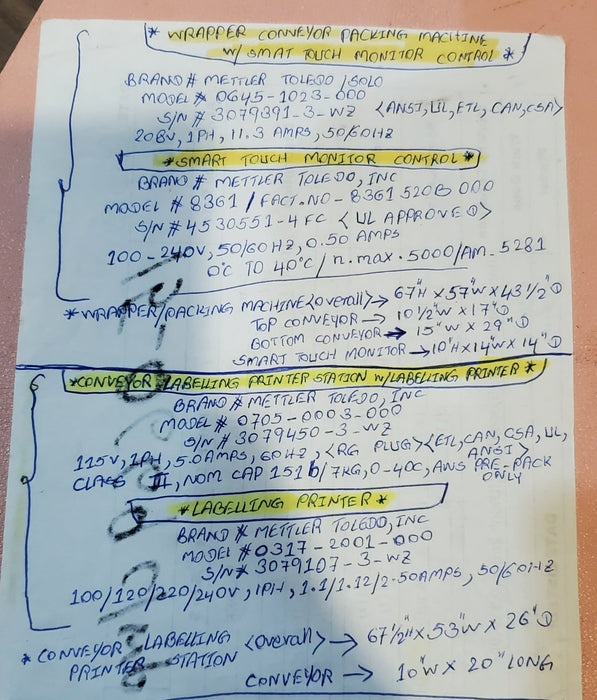 * WRAPPER CONVEYOR PACKING MACHINE
W/ SMAT TOUCH MONITOR CONTROL *
BRAND # METTLER TOLEDO / SOLO
MODEL # 0645-1023-000
S/N # 3079391-3-WZ <ANSI, UL, ETL, CAN, CSA>
208V, 1PH, 11.3 AMPS, 50/60HZ
*SMART TOUCH MONITOR CONTROL*
BRAND # METTLER TOLEDO, INC
MODEL # 8361 / FACT. NO - 8361 520B 000
S/N # 4530551-4FC <UL APPROVED>
100-240V, 50/60HZ, 0.50 AMPS
0°C TO 40°C / n.max. 5000/AM-5281
*WRAPPER/PACKING MACHINE <overall> → 67"H X 57"W X 43 1/2"D
TOP CONVEYOR → 10 1/2"W X 17"D
BOTTOM CONVEYOR → 15"W X 29"D
SMART TOUCH MONITOR → 10"H X 14"W X 14"D
*CONVEYOR LABELLING PRINTER STATION W/LABELLING PRINTER*
BRAND # METTLER TOLEDO, INC
MODEL # 0705-0003-000
S/N # 3079450-3-WZ
115V, 1PH, 5.0AMPS, 60HZ, <RG PLUG> <ETL, CAN, CSA, UL, ANSI>
CLASS III, NOM CAP 15lb/7KG, 0-40C, AWS PRE-PACK ONLY
*LABELLING PRINTER*
BRAND # METTLER TOLEDO, INC
MODEL # 0317-2001-000
S/N # 3079107-3-WZ
100/120/220/240V, 1PH, 1.1/1.12/2.50AMPS, 50/60HZ
* CONVEYOR LABELLING PRINTER STATION <overall> → 67 1/2"H X 53"W X 26"D
CONVEYOR → 10"W X 20" LONG